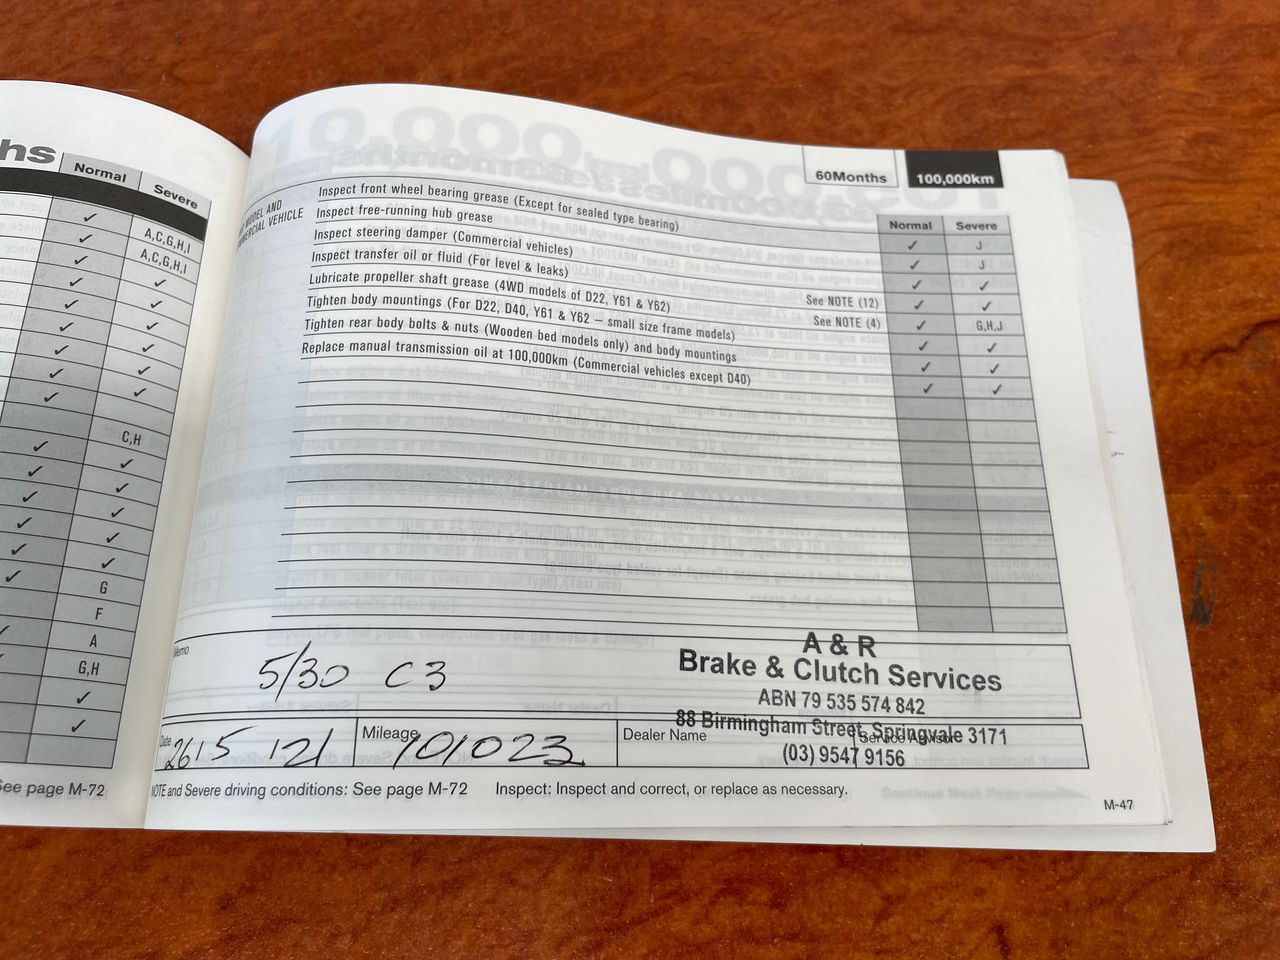 hs
Normal
Severe
A,C,G,H,I
A,C,G,H,I
C,H
G
F
A
G,H
See page M-72
60Months 100,000km
Normal Severe
MODEL AND
COMMERCIAL VEHICLE
Inspect front wheel bearing grease (Except for sealed type bearing) ✓ J
Inspect free-running hub grease ✓ J
Inspect steering damper (Commercial vehicles) ✓ ✓
Inspect transfer oil or fluid (For level & leaks) See NOTE (12) ✓ ✓
Lubricate propeller shaft grease (4WD models of D22, Y61 & Y62) See NOTE (4) ✓ G,H,J
Tighten body mountings (For D22, D40, Y61 & Y62 – small size frame models) ✓ ✓
Tighten rear body bolts & nuts (Wooden bed models only) and body mountings ✓ ✓
Replace manual transmission oil at 100,000km (Commercial vehicles except D40) ✓ ✓
Memo
5/30 C3
A & R
Brake & Clutch Services
ABN 79 535 574 842
88 Birmingham Street, Springvale 3171
(03) 9547 9156
Date 26/5/21
Mileage 101023
Dealer Name
Service Advisor
NOTE and Severe driving conditions: See page M-72 Inspect: Inspect and correct, or replace as necessary.
M-47